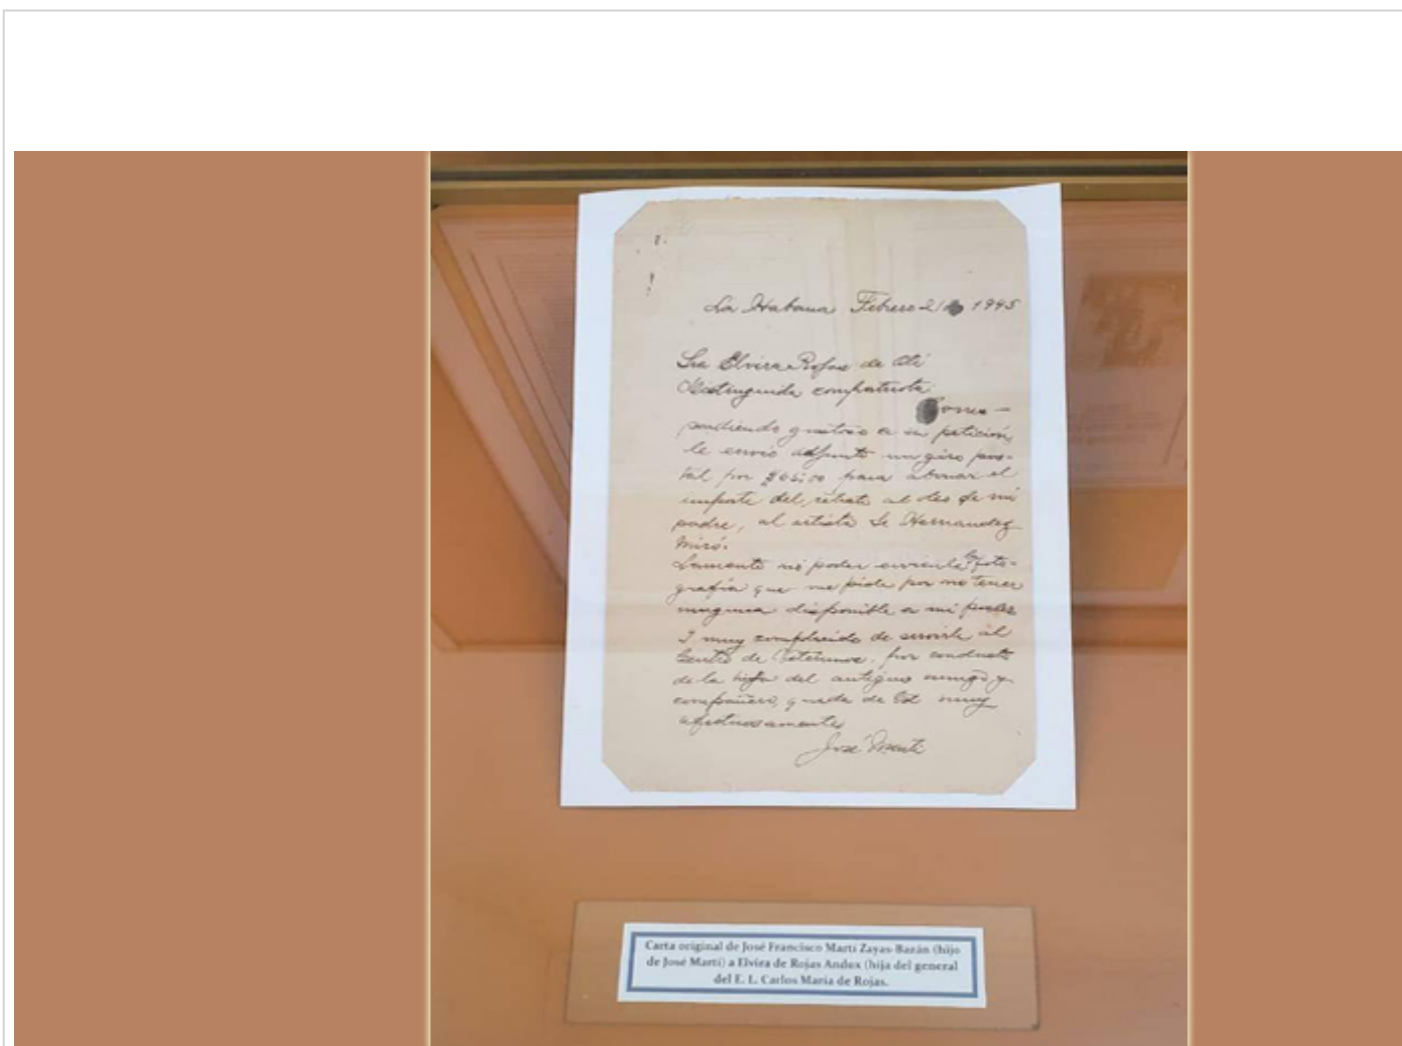 La Habana, Febrero 21 1945
Sra Elvira Rojas de
Distinguida compatriota
Corres-
pondiendo gustoso a su petición,
le envio adjunto un giro pos-
tal por para abonar el
importe del retrato al oleo de mi
padre, al artista Sr Hernandez
Miró.
Lamento no poder enviarle la foto-
grafía que me pide por no tener
ninguna disponible a mi poder
I muy complacido de servirle al
Centro de Veteranos, por conducto
de la hija del antiguo amigo y
compañero, queda de Vd muy
afectuosamente
José Martí
Carta original de José Francisco Martí Zayas-Bazán (hijo
de José Martí) a Elvira de Rojas Andux (hija del general
del E. L. Carlos María de Rojas.